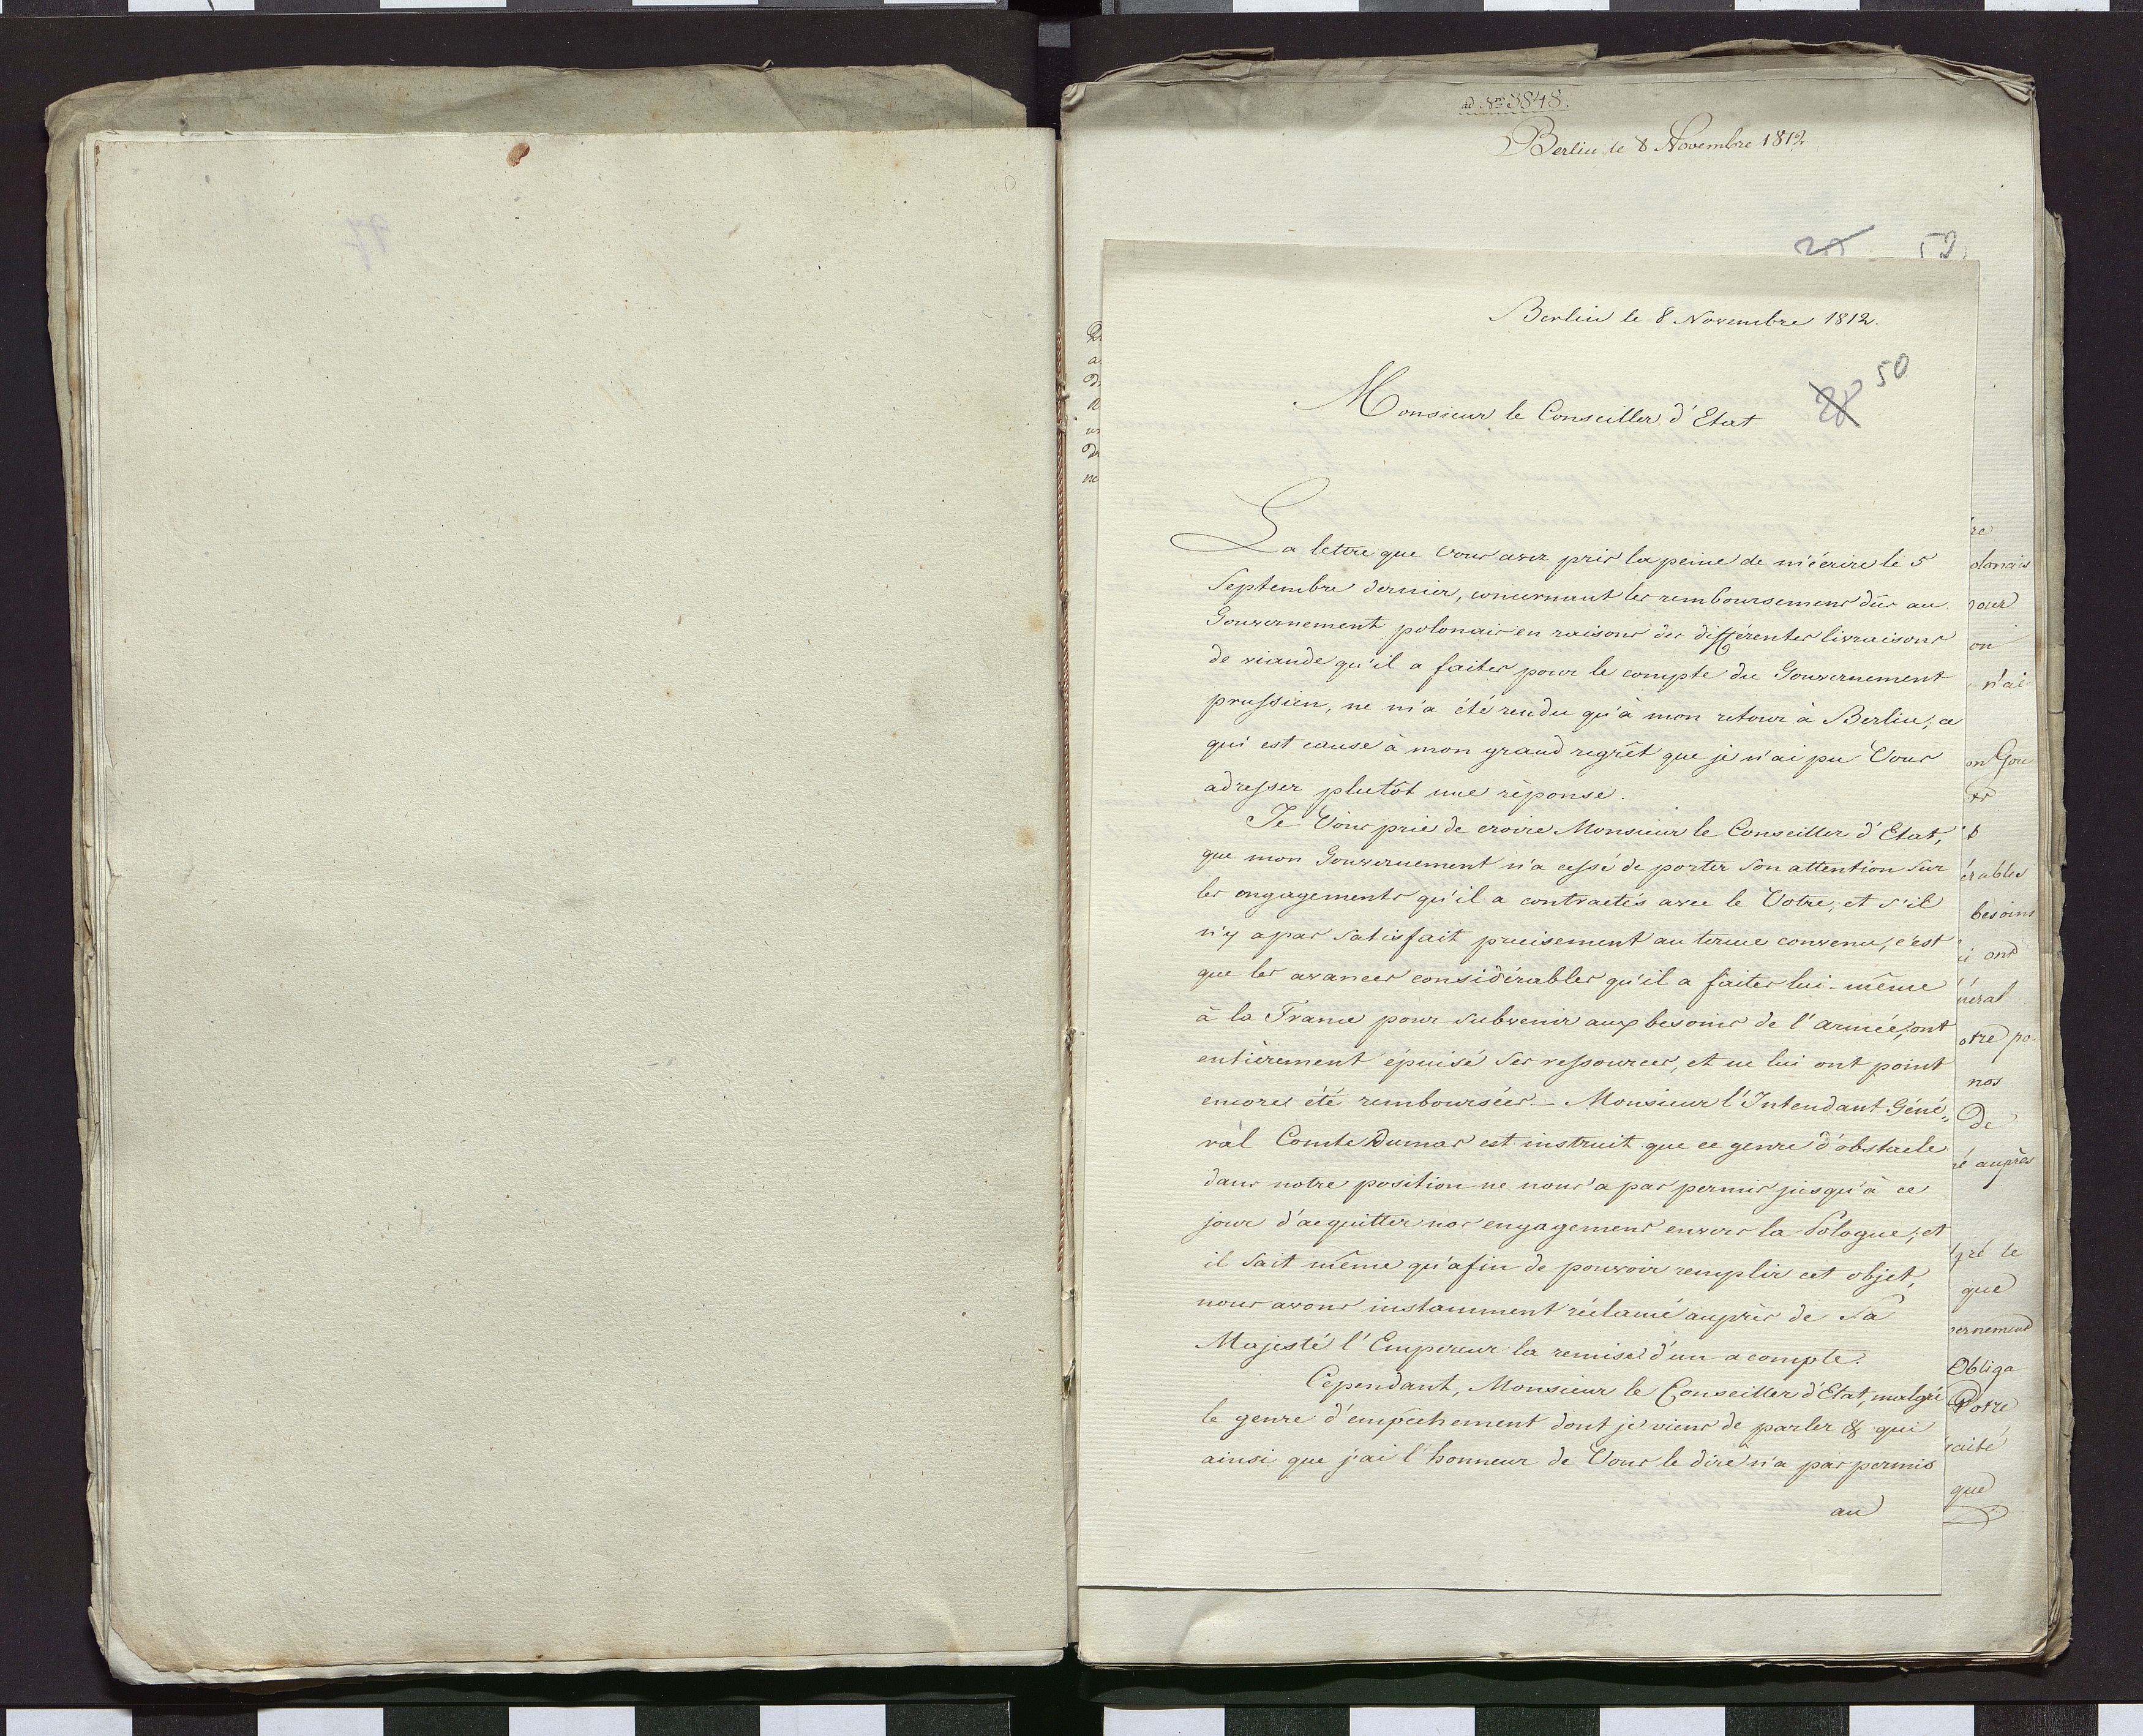 ad Nro 3848.
Berlin le 8 Novembre 1812
Berlin le 8 Novembre 1812.
50
28
Monsieur le Conseiller d'Etat
La lettre que Vous avez pris la peine de m'écrire le 5
Septembre dernier, concernant les remboursemens dûs au
Gouvernement polonais en raisons des différentes livraisons
de viande qu'il a faites pour le compte du Gouvernement
prussien, ne m'a été rendu qu'à mon retour à Berlin; ce
qui est cause à mon grand regrêt que je n'ai pu Vous
adresser plutôt une réponse.
Je Vous prie de croire Monsieur le Conseiller d'Etat,
que mon Gouvernement n'a cessé de porter son attention sur
les engagements qu'il a contractés avec le Votre; et s'il
n'y a pas satisfait precisement au terme convenu, c'est
que les avances considérables qu'il a faites lui-même
à la France pour subvenir aux besoins de l'armée, ont
entièrement épuisé ses ressources, et ne lui ont point
encore été remboursées. — Monsieur l'Intendant Géné=
ràl Comte Dumas est instruit que ce genre d'obstacle
dans notre position ne nous a pas permis jusqu'à ce
jour d'acquitter nos engagemens envers la Pologne; et
il sait même qu'afin de pouvoir remplir cet objet,
nous avons instamment réclamé auprès de Sa
Majesté l'Empereur la remise d'un acompte.
Cependant, Monsieur le Conseiller d'Etat, malgré
le genre d'empêchement dont je viens de parler & qui
ainsi que j'ai l'honneur de Vous le dire n'a pas permis
au
olonais
on
n'ai
on Gou
érables
besoins
ont
néral
otre po-
nos
de
é auprès
gré le
que
ernement
Obliga
Votre
raité
que